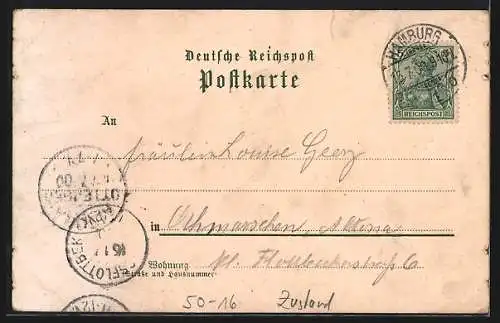 HAMBURG
REICHSPOST
Deutsche Reichspost
Postkarte
An
Fräulein Louise Geerz
in Othmarschen, Altona
Kl. Flottbeckerstraße 6
Wohnung
Straße und Hausnummer
FLOTTBEK
50-16 Zustand